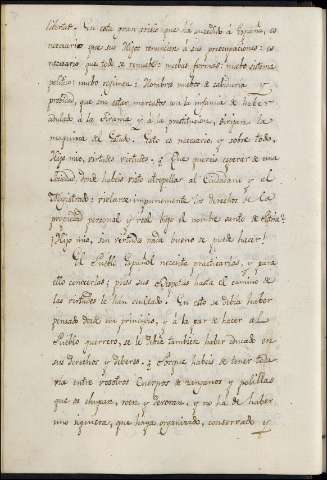 libertad. En esta gran crisis que ha sucedido á España, es
necesario que sus Hijos renuncien á sus preocupaciones: es
necesario que todo se renueve: nuebas formas: nuebo sistema
politico: nuebo regimen: Hombres nuebos de sabiduria y
probidad, que sin estar marcados con la infamia de haber
adulado á la tirania y á la prostitucion, dirijan la
maquina del Estado. Esto es necesario, y sobre todo,
Hijo mio, virtudes virtudes. ¿ Que quereis esperar de una
Ciudad, donde habeis visto atropellar al Ciudadano y el
Magistrado: violarse impunemente los derechos de la
propiedad personal y real bajo el nombre santo de Patria?
¡Hijo mio, sin virtudes nada bueno se puede hacer!
El Pueblo Español necesita practicarlas, y para
ello conocerlas; pues sus Despotas hasta el camino de
las virtudes le han ocultado. En esto se debia haber
pensado desde un principio, y á la par de hacer al
Pueblo guerrero, se le debia tambien haber educado en
sus derechos y deberes. ¿ Porque habeis de tener toda
via entre vosotros Cuerpos de zanganos y polillas
que os chupan, roen y devoran, y no ha de haber
uno siquiera, que haya organizado, conservado y